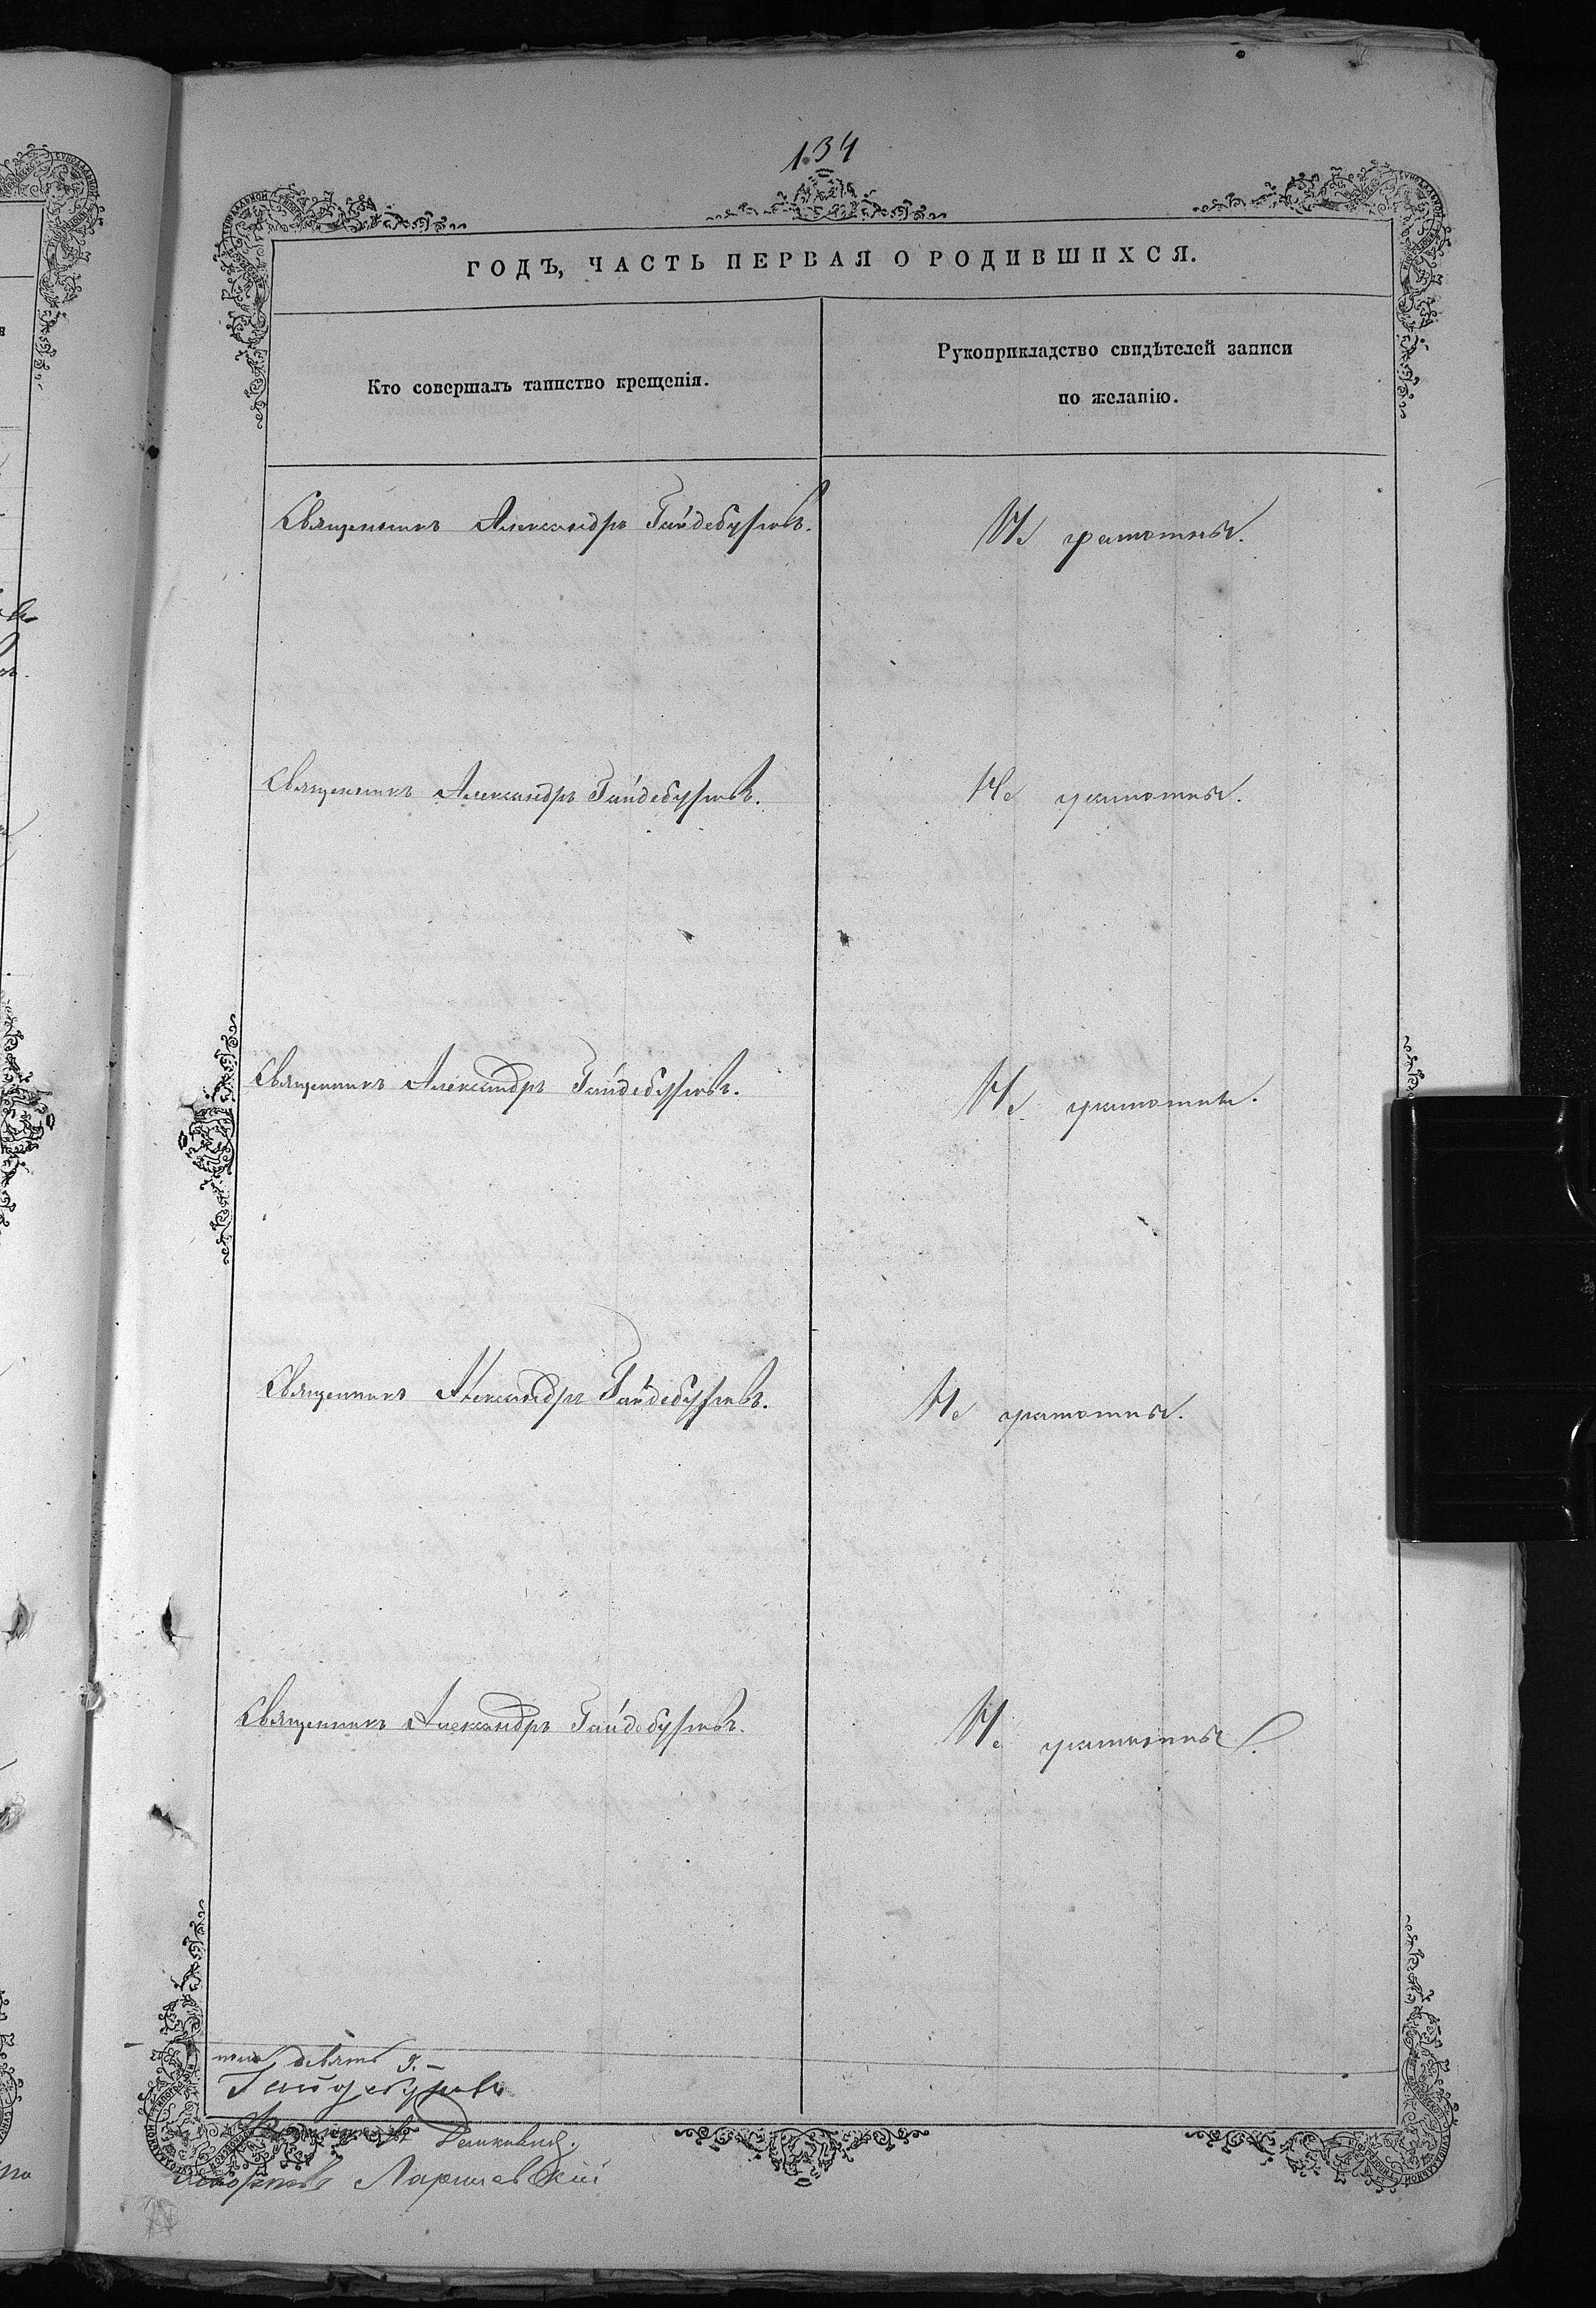 134
ГОДЪ, ЧАСТЬ ПЕРВАЯ О РОДИВШИХСЯ.
Кто совершалъ таинство крещенія.
Рукоприкладство свидѣтелей записи
по желанію.
Священникъ Александръ Гайдебуровъ.
Не грамотны.
Священникъ Александръ Гайдебуровъ.
Не грамотны.
Священникъ Александръ Гайдебуровъ.
Не грамотны.
Священникъ Александръ Гайдебуровъ.
Не грамотны.
Священникъ Александръ Гайдебуровъ.
Не грамотны.
девять 9.
Гайдебуровъ